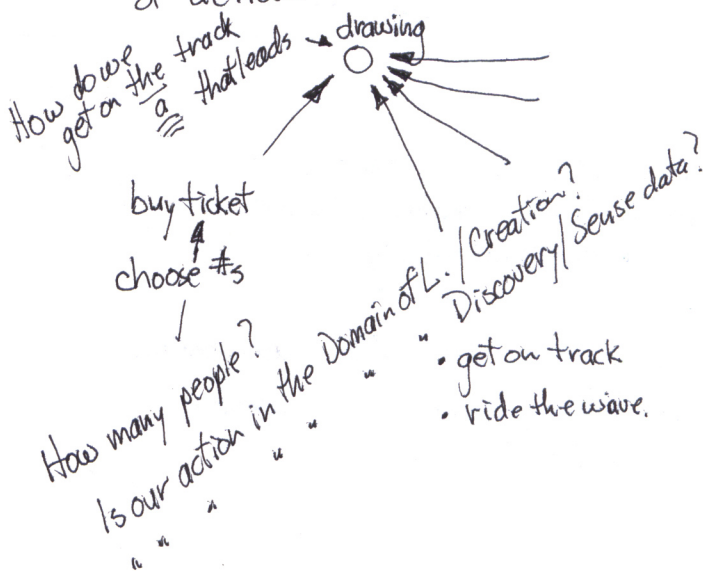 drawing
How do we
get on the track
a that leads
buy ticket
choose #s
How many people?
Is our action in the Domain of L./Creation?
" " " " " " " Discovery/Sense data?
• get on track
• ride the wave.